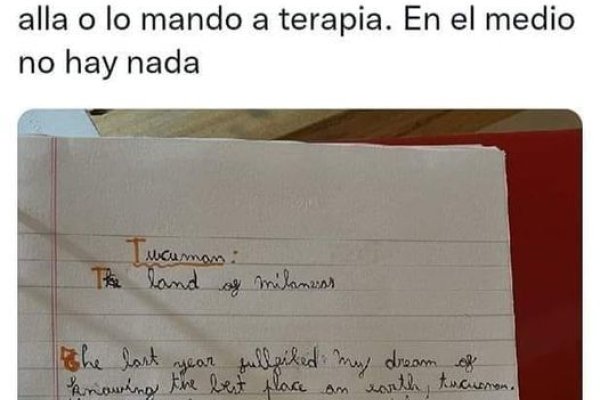 alla o lo mando a terapia. En el medio
no hay nada
Tucuman:
The land of milanesas
The last year fullfiled my dream of
knowing the best place on earth, tucuman.